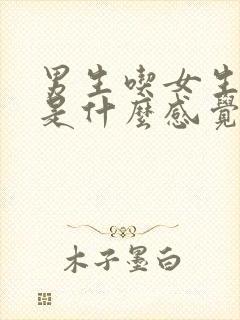 男生喫女生
是什麼感覺
木子墨白